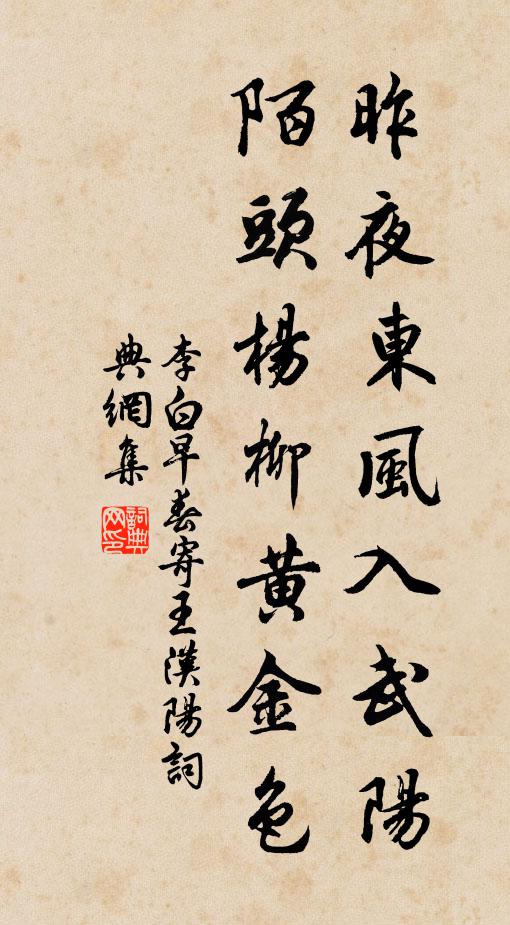 昨夜東風入武陽
陌頭楊柳黃金色
李白早春寄王漢陽詞
典網集
詞典
网印